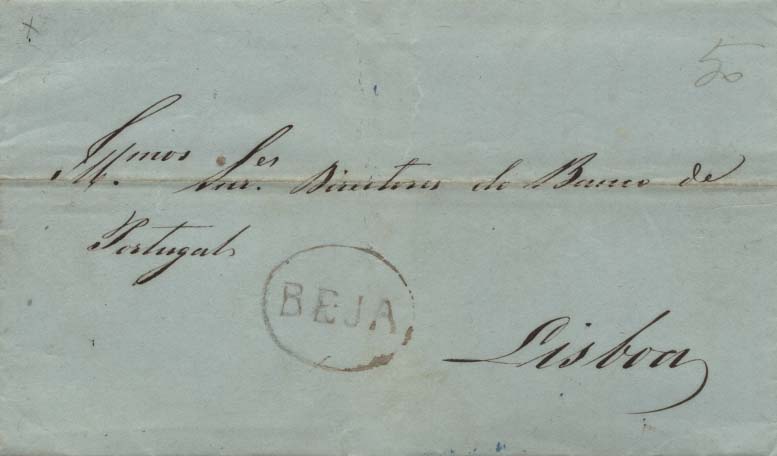 50
Illmos. Snres. Directores do Banco de
Portugal
BEJA
Lisboa